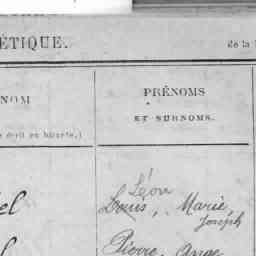 ÉTIQUE. de la
NOM PRÉNOMS
ET SURNOMS.
écrit en bâtarde.)
Léon
el Louis, Marie,
Joseph
Pierre, Ange